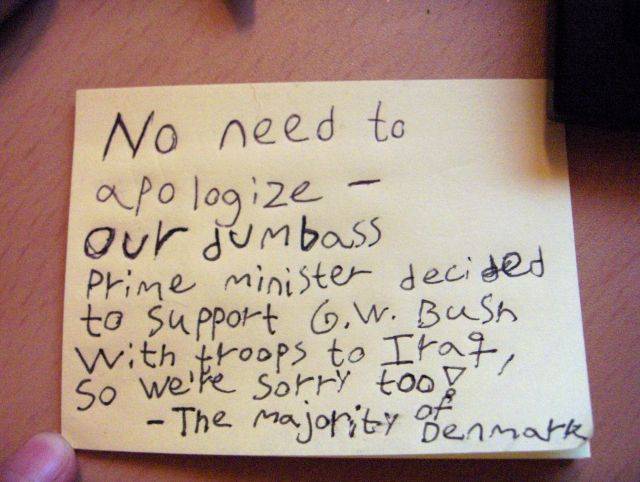 No need to
apologize -
our dumbass
Prime minister decided
to support G.W. Bush
With troops to Iraq,
So we're sorry too!
- The majority of
Denmark